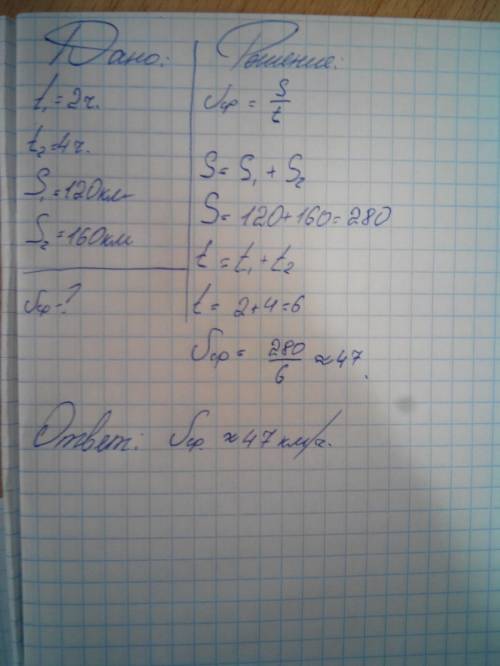 Дано:
t₁ = 2ч.
t₂ = 4ч.
S₁ = 120км
S₂ = 160км
Vср = ?
Решение:
Vср = S/t
S = S₁ + S₂
S = 120 + 160 = 280
t = t₁ + t₂
t = 2 + 4 = 6
Vср = 280/6 ≈ 47.
Ответ: Vср. ≈ 47 км/ч.